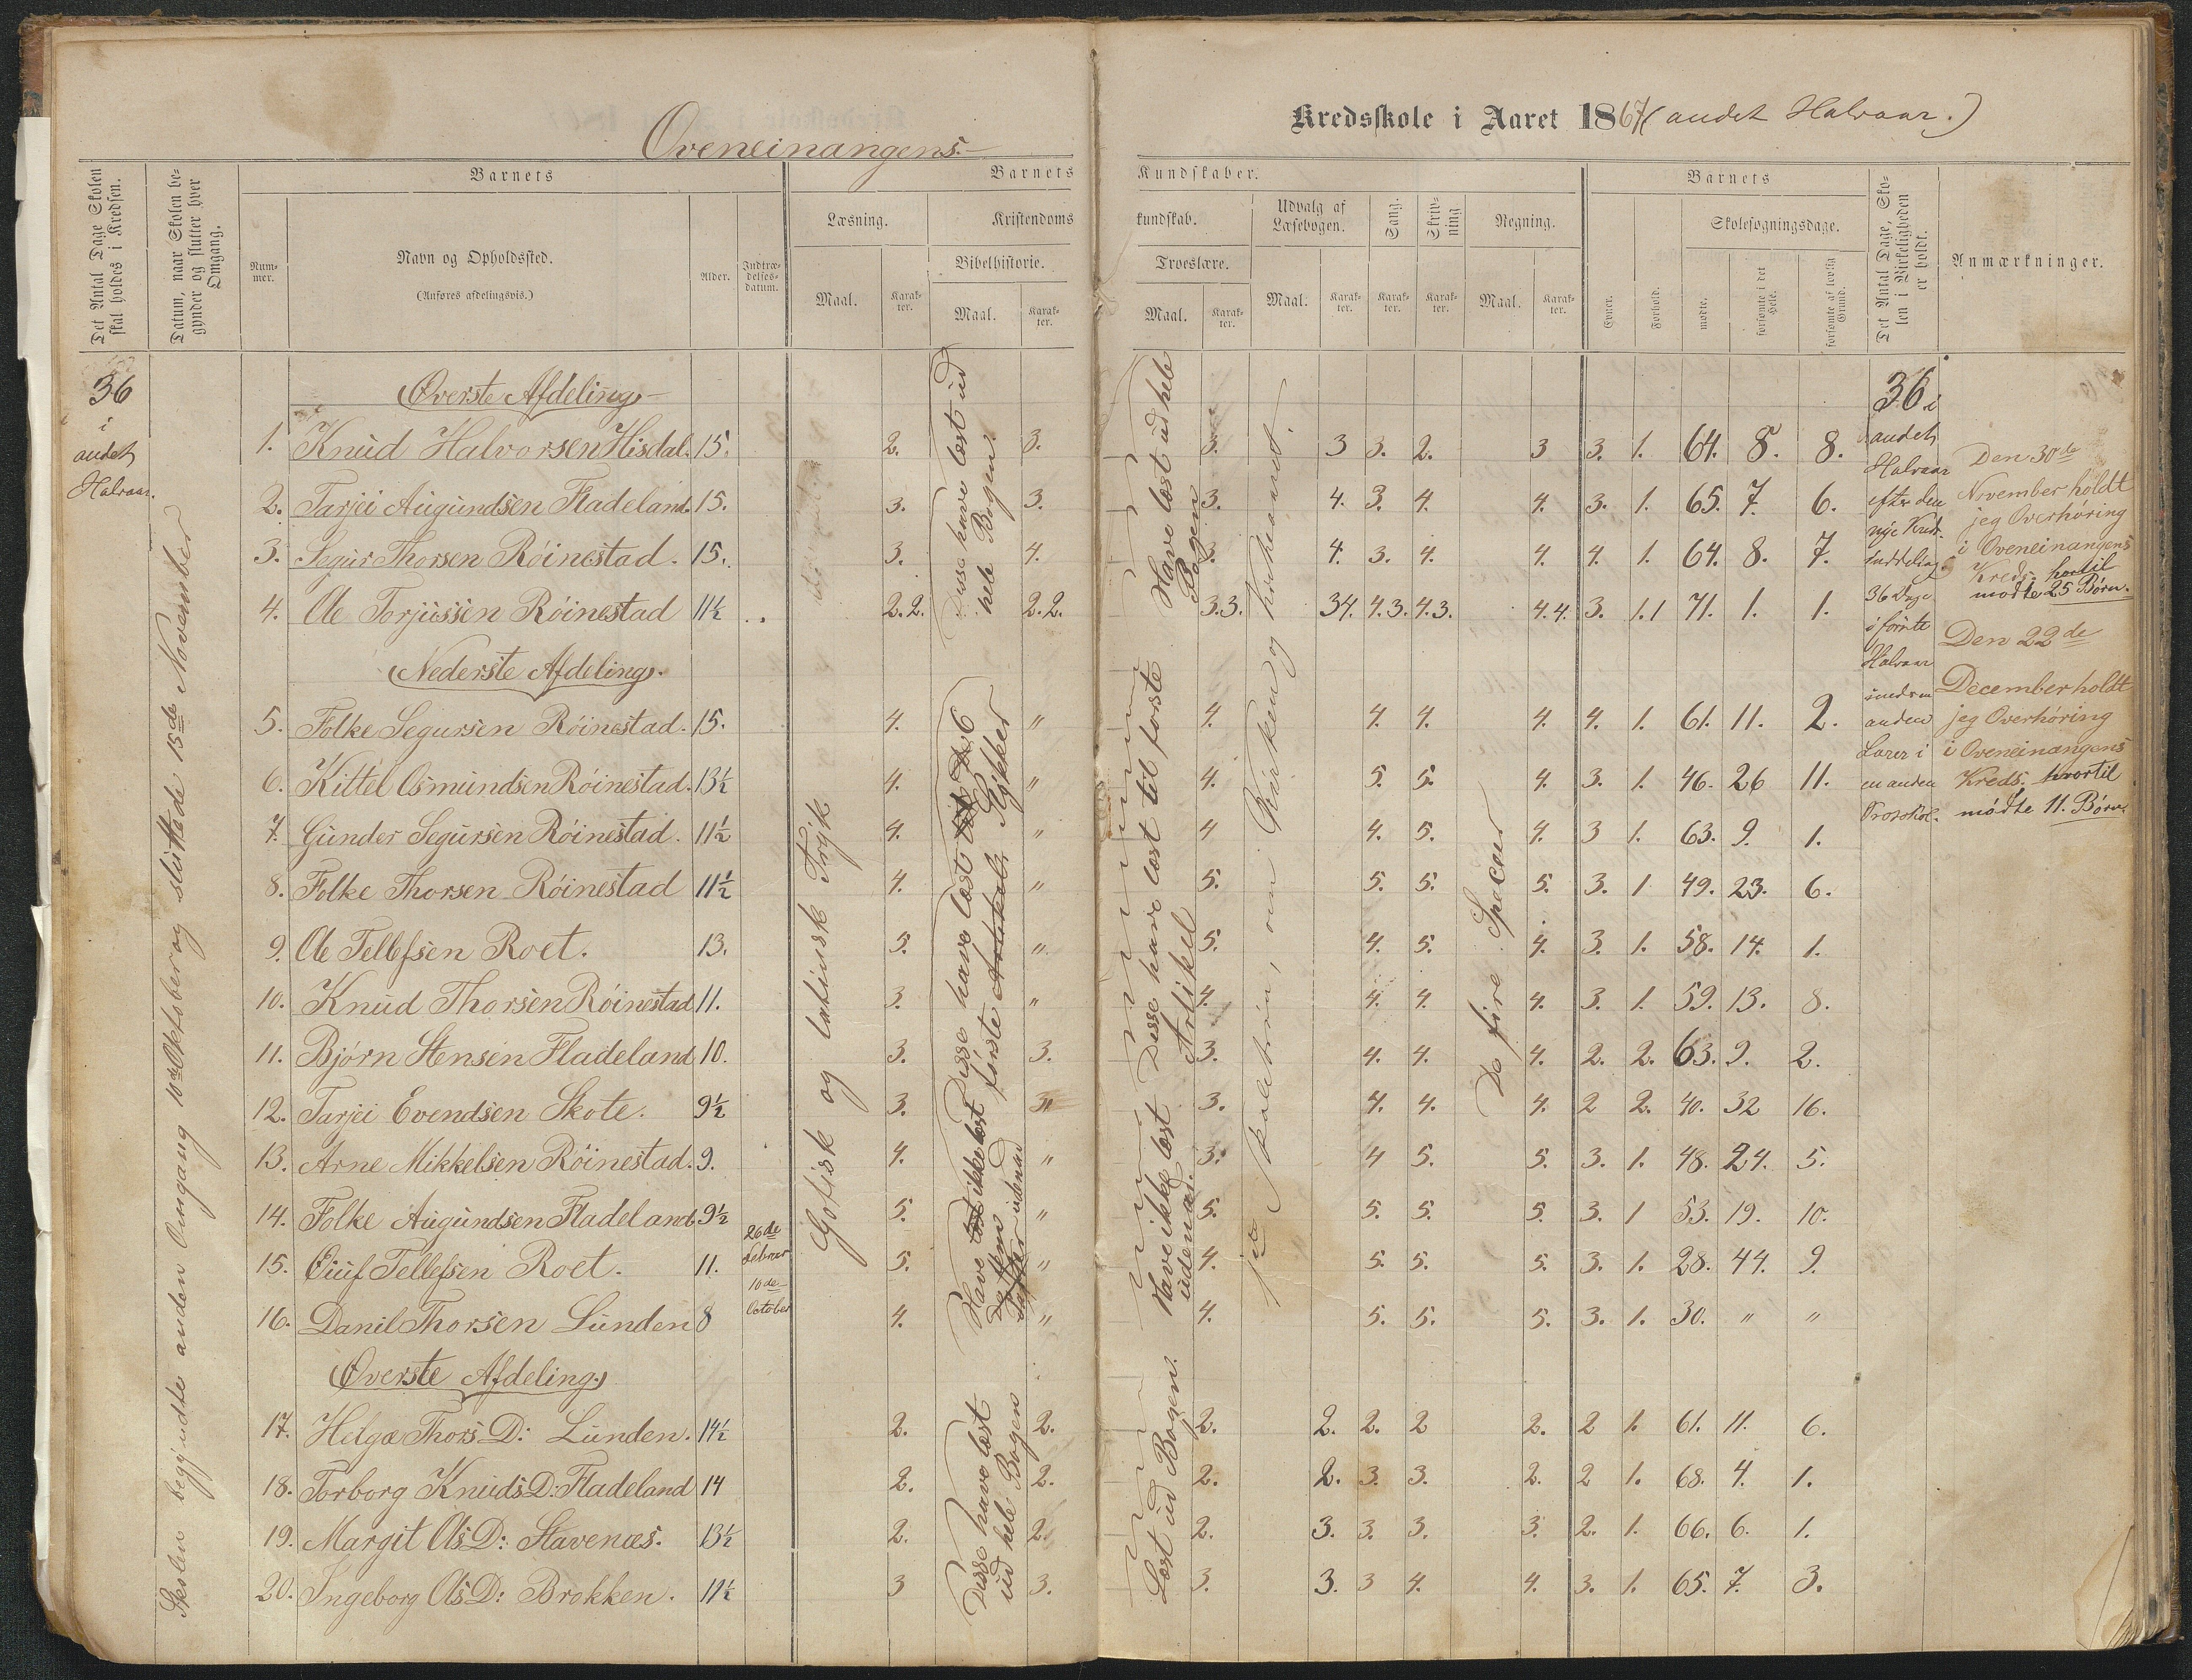 Oveneinangens.
Kredsskole i Aaret 1867 (andet Halvaar.)
Det Antal Dage Skolen skal holdes i Kredsen.
Datum, naar Skolen begynder og slutter hver Omgang.
Barnets
Barnets Kundskaber.
Barnets
Det Antal Dage, Skolen i Virkeligheden er holdt.
Anmærkninger.
Nummer.
Navn og Opholdssted.
(Anføres afdelingsvis.)
Alder.
Indtrædelsesdatum.
Læsning.
Kristendomskundskab.
Udvalg af Læsebogen.
Sang.
Skrivning
Regning.
Skolesøgningsdage.
Bibelhistorie.
Troeslære.
Maal.
Karakter.
Maal.
Karakter.
Maal.
Karakter.
Maal.
Karakter.
Karakter.
Karakter.
Maal.
Karakter.
Evner.
Forhold.
mødte.
forsømte i det Hele.
forsømte af lovlig Grund.
36
i
andet
Halvaar.
Skolen begyndte anden Omgang 10de Oktober og sluttede 15de November
Øverste Afdeling
1. Knud Halvorsen Hisdal. 15. 2. 3. 3. 3 3. 2. 3 3. 1. 64. 8. 8.
2. Tarjei Augundsen Fladeland. 15. 3. 3. 3. 4. 3. 4. 4. 3. 1. 65. 7. 6.
3. Segur Thorsen Röinestad. 15. 3. 4. 3. 4. 3. 4. 4. 4. 1. 64. 8. 7.
4. Ole Torjussen Röinestad 11½ 2.2. 2.2. 3.3. 34. 4.3. 4.3. 4.4. 3. 1.1 71. 1. 1.
Nederste Afdeling.
5. Folke Segursen Röinestad. 15. 4. " 4. 4. 4. 4. 4. 1. 61. 11. 2.
6. Kittel Osmundsen Röinestad. 13½ 4. " 4. 5. 5. 4. 3. 1. 46. 26 11.
7. Gunder Segursen Röinestad. 11½ 4. " 4 4. 5. 4. 3 1. 63. 9. 1.
8. Folke Thorsen Röinestad 11½ 4. " 5. 5. 5. 5. 3. 1 49. 23. 6.
9. Ole Tellefsen Roet. 13. 5. " 5. 4. 5. 4. 3. 1. 58. 14. 1.
10. Knud Thorsen Röinestad 11. 3. " 4. 4. 4. 4. 3. 1. 59. 13. 8.
11. Bjørn Stensen Fladeland 10. 3. 3. 3. 4. 4. 4. 2. 2. 63. 9. 2.
12. Tarjei Evendsen Skote. 9½ 3. 3. 4. 4. 4. 2 2. 40. 32 16.
13. Arne Mikkelsen Röinestad. 9. 4. " 3. 4 5. 5. 3. 1. 48. 24. 5.
14. Folke Augundsen Fladeland 9½ 5. " 5. 5. 5. 5. 3. 1 53. 19. 10.
15. Eiuf Tellefsen Roet. 11. 26de Februar 5. " 4. 5. 5. 5. 3. 1. 28. 44. 9.
16. Danil Thorsen Lunden 8 10de October 4. " 4. 5. 5. 5. 3. 1. 30. " "
Øverste Afdeling.
17. Helga Thors D: Lunden. 14½ 2. 2. 2. 2. 2. 2 2. 2 1. 61. 11. 6.
18. Torborg Knuds D: Fladeland 14 2. 2. 2. 2. 3. 3. 2. 2 1. 68. 4. 1.
19. Margit Ols D: Stavenæs. 13½ 2. 2. 2. 3. 3. 3. 3. 2. 1. 66. 6. 1.
20. Ingeborg Ols D: Brokken. 11½ 3 3. 3. 3. 3 4. 4. 3. 1. 65. 7. 3.
Gotisk og latinsk Tryk
Disse have læst ud
hele Bogen.
Disse have læst
første Stykker
Have ikke læst
udenad
Disse have læst
ud hele Bogen
Have læst ud hele
Bogen
Disse have læst til første
Artikel
Have ikke læst
udenad.
Læst ud Bogen.
De fire Specier
36 i
andet
Halvaar
efter den
nye Kreds-
inddeling
36 Dage
i første
Halvaar
anden
Lærer i
en anden
Den 30de
November holdt
jeg Overhøring
i Oveneinangens
Kreds, hvortil
mødte 25 Børn.
Den 22de
December holdt
jeg Overhøring
i Oveneinangens
Kreds, hvortil
mødte 11. Børn.